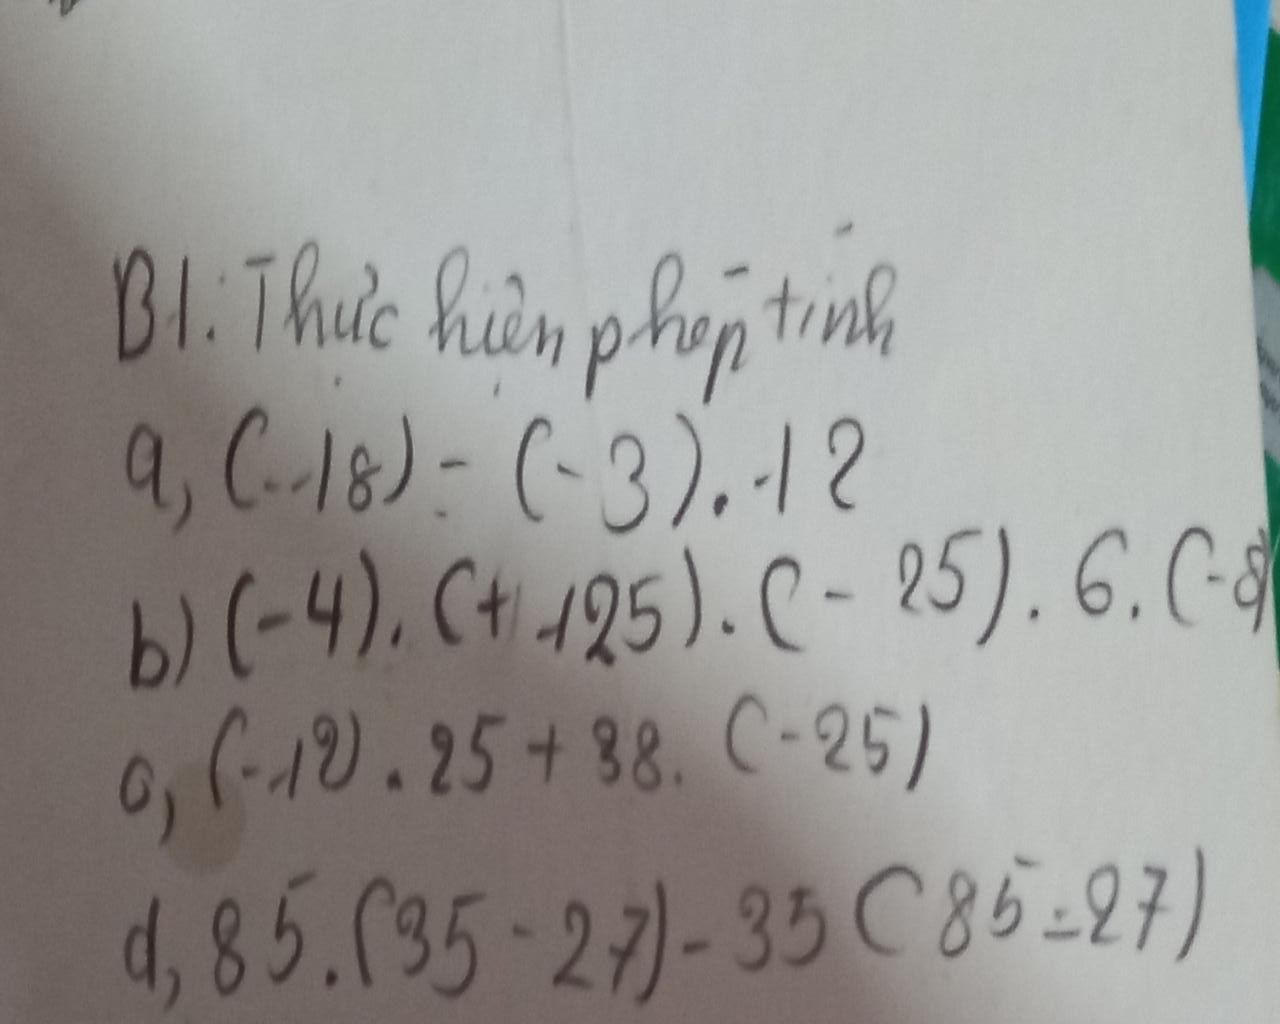 B1: Thực hiện phép tính
a, (-18) - (-3) . 12
b) (-4) . (+ 125) . (- 25) . 6 . (-8)
c, (-12) . 25 + 38 . (-25)
d, 85 . (35 - 27) - 35 ( 85 - 27)